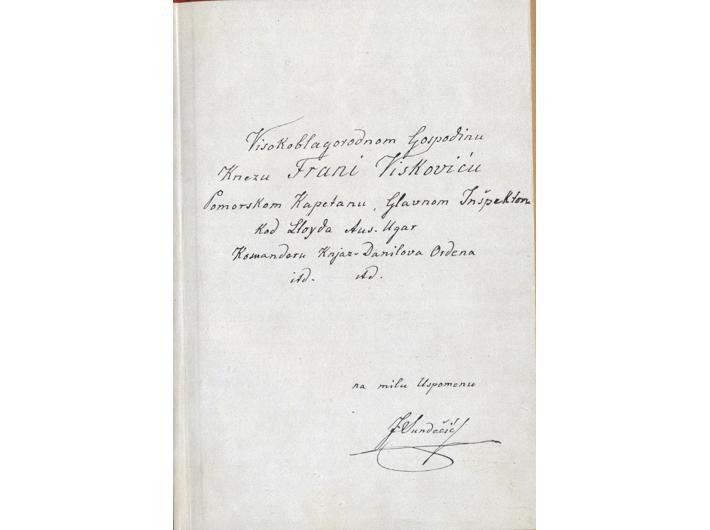 Visokoblagorodnom Gospodinu
Knezu Frani Viskoviću
Pomorskom Kapetanu, Glavnom Inšpektoru
kod Lloyda Aus. Ugar
Komanderu Knjaz-Danilova Ordena
itd. itd.
na milu Uspomenu
J Sundečić